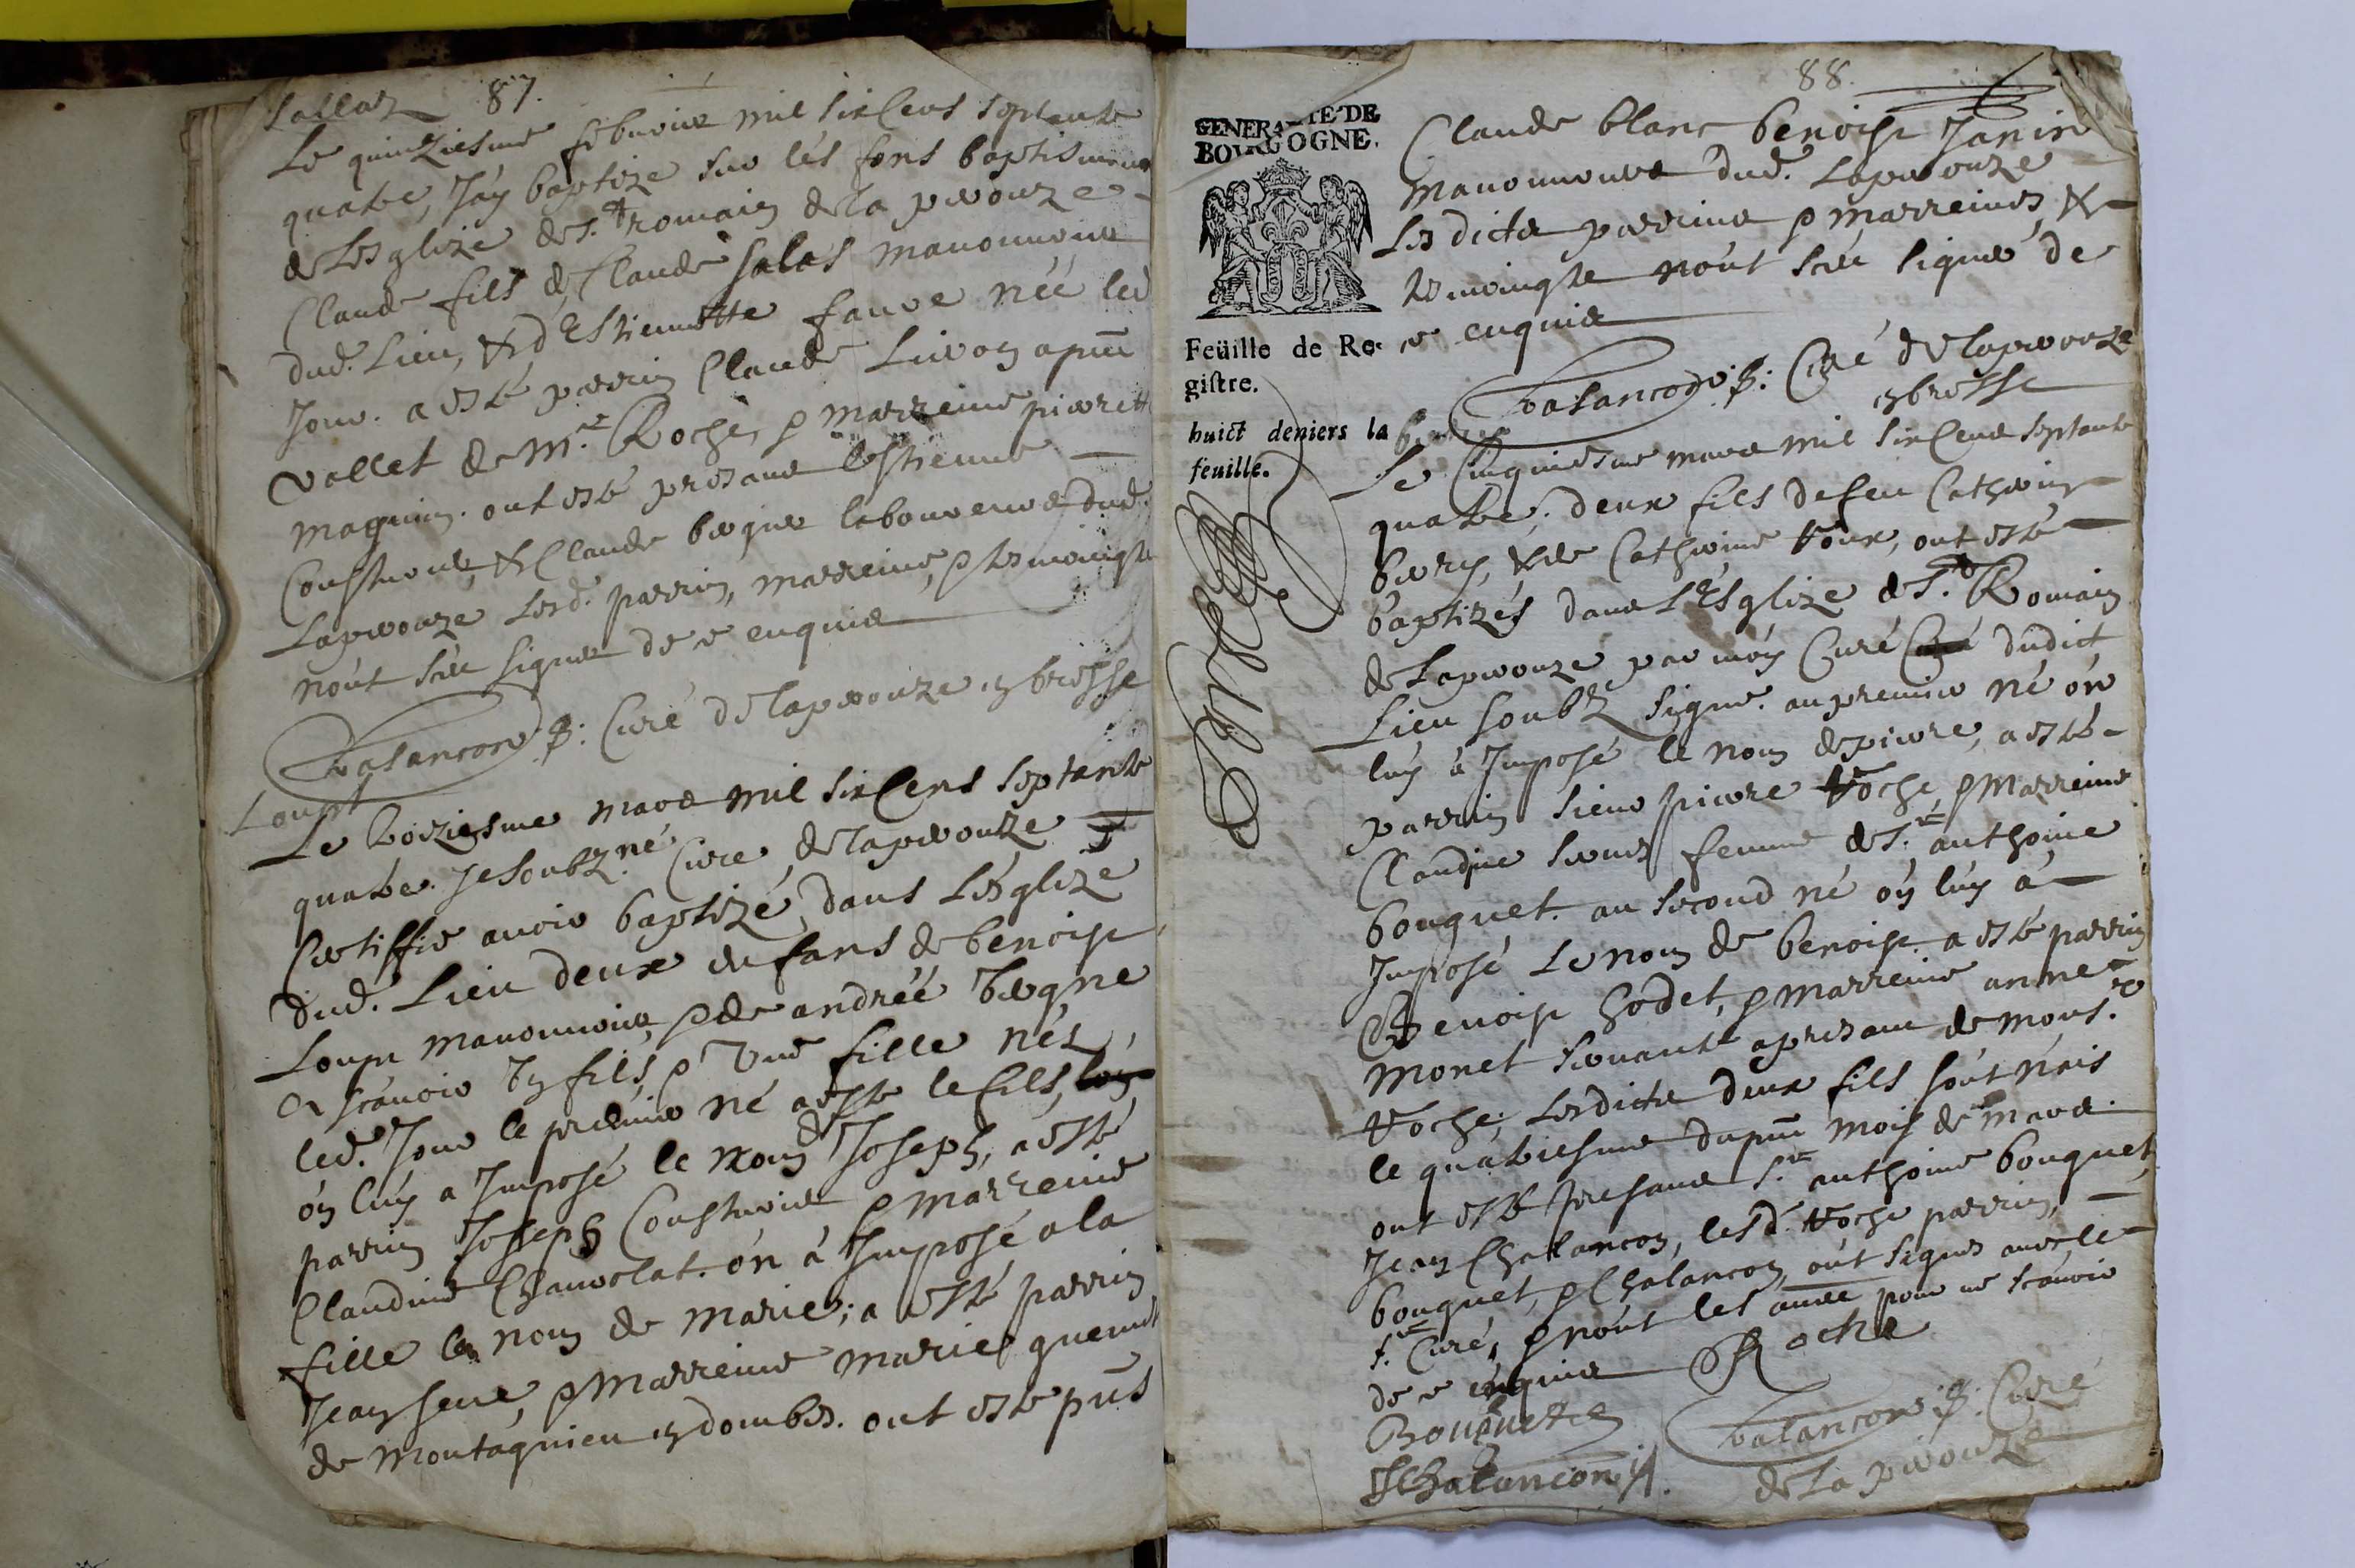 Sallaz 87.
Le quinziesme febvrier mil six Cens septante
quatre, J'ay baptize sur lés fons baptismaux
de L'esglize de St. Romain de la perouze
Claude fils de Claude Salas manouvrier
dud. Lieu, & d'Estiennette favre néé led.
Jour. a esté parrin Claude Livon apnt
vallet de Mr. Roche, & marreine pierrette
magnin. ont esté presans Estienne
Cousturier, & Claude bergier laboureurs dud.
Laperouze lesd. parrin, marreine, & tesmoingts
n'ont sceu signer de ce enquis
Balancon p: Curé de laperouze en bresse
Loupt
Le troiziesme mars mil six Cens septante
quatre. Je soubz.né Curé de laperouze
Certiffie avoir baptizé, dans L'ésglize
dud. Lieu deux enfans de benoist
Loupt manouvrier, & de andréé
A scavoir un fils, & Une fille nés
led. Jour le premier né a esté le fils,
on luy a Imposé le nom de Joseph, a esté
parrin Joseph Cousturier & Marreine
Claudine on à Imposé a la
fille le nom de Marie; a esté parrin
Jean & Marreine marie
de Montagnieu en dombes. ont esté pns
88.
GENERALITE DE
BOURGOGNE.
Feüille de Re-
gistre.
huict deniers la
feuille.
Claude blanc benoist Janin
manouvriers dud. Laperouze
Lesdicts parrins & marreines, &
tesmoingts n'ont sceu signer de
ce enquis
Balancon p: Curé de laperouze
en bresse
Le Cinquiesme mars mil six Cens septante
quatre; deux fils de feu Catherin
bery, & de Catherine Roux, ont esté
baptizés dans L'Esglize de St. Romain
de Laperouze par moy Curé dudict
Lieu soubz signé. au premier né on
luy à Imposé le nom de pierre, a esté
parrin sieur pierre Roche, & Marreine
Claudine femme de Sr. anthoine
bouquet. au second né on luy à
Imposé Le nom de benoist. a esté parrin
Benoist Godet, & marreine anne
monet servante apresant de Monsr.
Roche; Lesdicts deux fils sont néis
le quatriesme du pnt mois de mars.
ont esté presans Sr. anthoine bouquet,
Jean Chalancon, lesd. Roche parrin,
bouquet, & Chalancon, ont signés avec le
Sr. Curé, & n'ont les autres pour ne scavoir
de ce enquis Roche
Bouquet
JChalancon
Balancon p: Curé
de La perouze